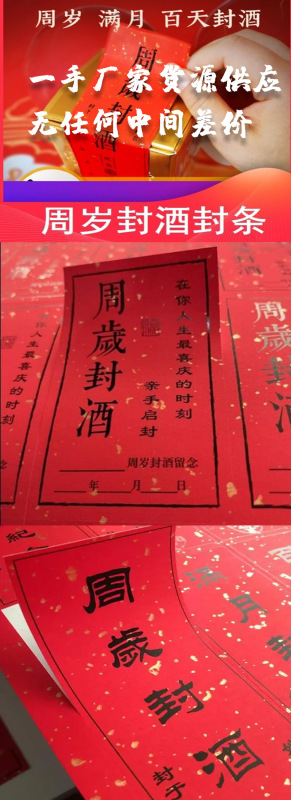 周岁 满月 百天封酒
周
岁
封
酒
一手厂家货源供应
无任何中间差价
周岁封酒封条
周歲封酒
在你人生最喜庆的时刻
亲手启封
周岁封酒留念
年 月 日
周歲封
你人生最喜庆的时刻
紀
念
周歲封酒
满月封
封于